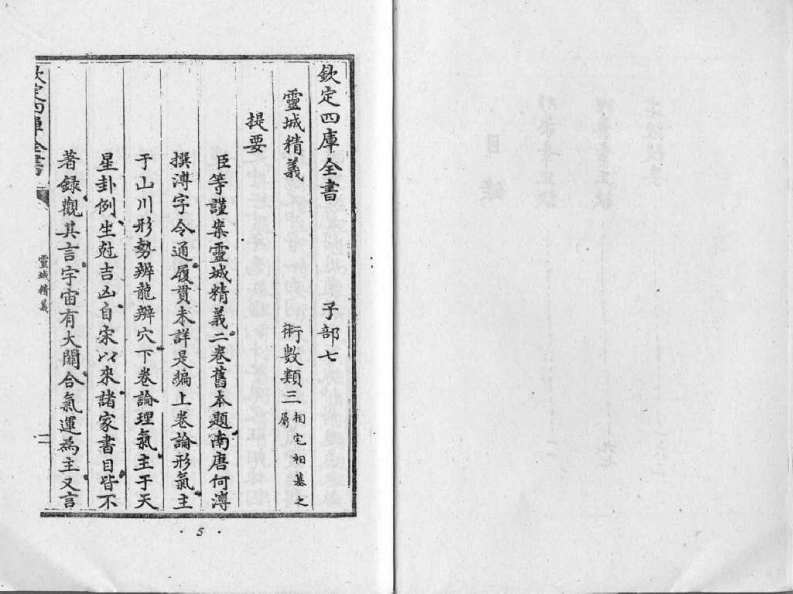 欽定四庫全書 子部七
靈城精義 術數類三 相宅相墓之屬
提要
臣等謹案靈城精義二卷舊本題南唐何溥
撰溥字令通履貫未詳是編上卷論形氣主
于山川形勢辨龍辨穴下卷論理氣主于天
星卦例生尅吉凶自宋以來諸家書目皆不
著錄觀其言宇宙有大關合氣運為主又言
欽定四庫全書
靈城精義
二
·5·
目